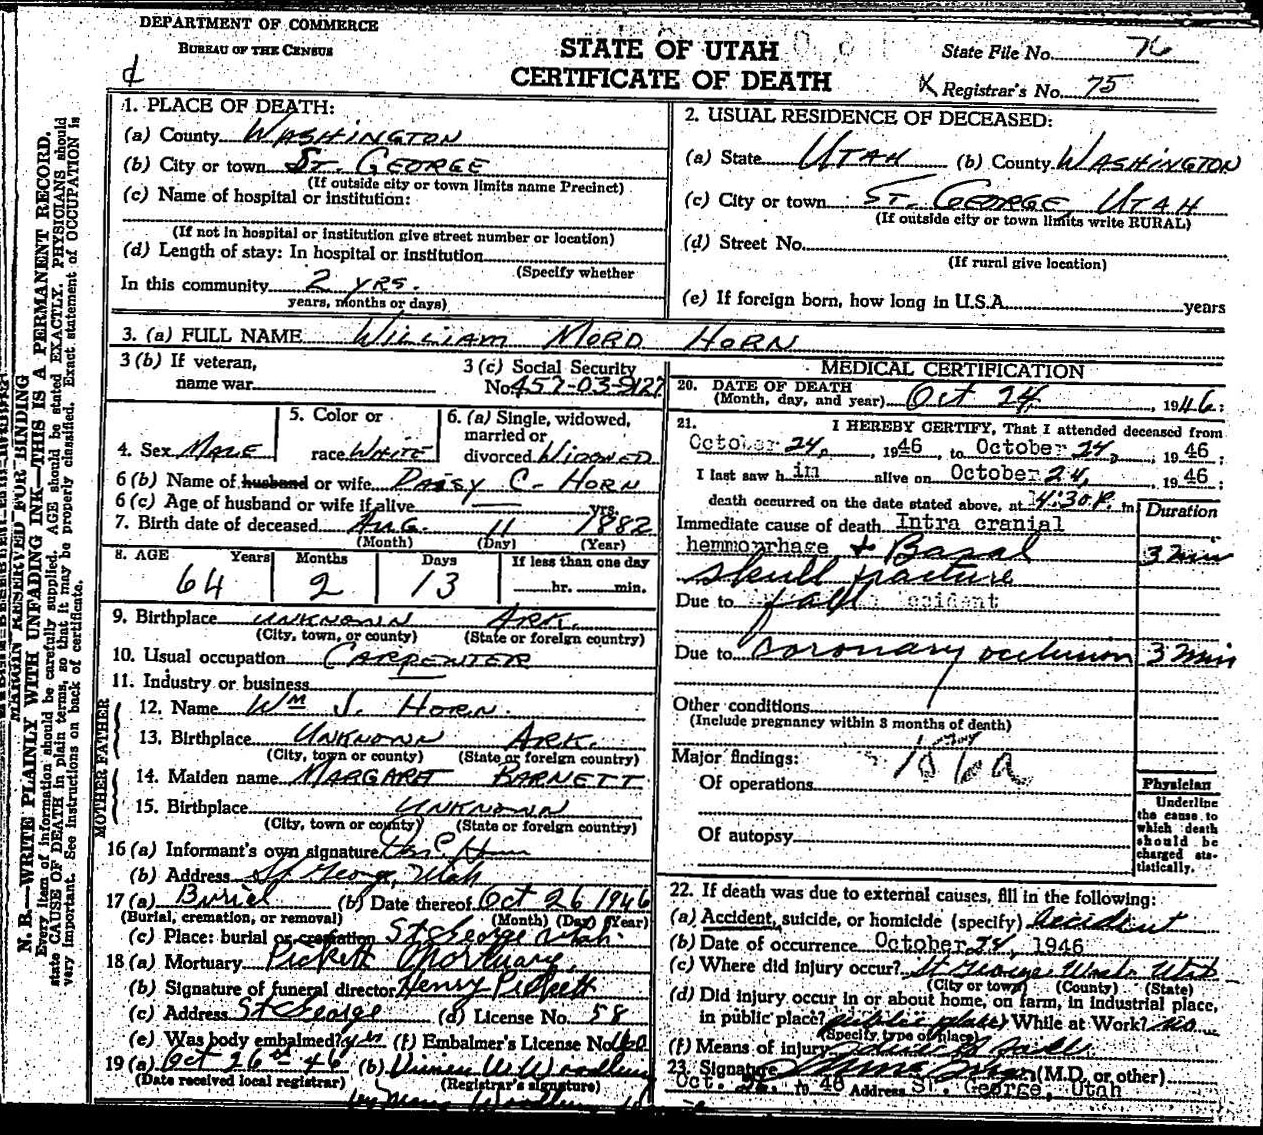 DEPARTMENT OF COMMERCE
BUREAU OF THE CENSUS
STATE OF UTAH
CERTIFICATE OF DEATH
State File No. 76
Registrar's No. 75
N. B.—WRITE PLAINLY WITH UNFADING INK—THIS IS A PERMANENT RECORD.
MARGIN RESERVED FOR BINDING
Every item of information should be carefully supplied. AGE should be stated EXACTLY. PHYSICIANS should
state CAUSE OF DEATH in plain terms, so that it may be properly classified. Exact statement of OCCUPATION is
very important. See instructions on back of certificate.
1. PLACE OF DEATH:
(a) County WASHINGTON
(b) City or town ST. GEORGE
(If outside city or town limits name Precinct)
(c) Name of hospital or institution:
(If not in hospital or institution give street number or location)
(d) Length of stay: In hospital or institution
(Specify whether
In this community 2 YRS.
years, months or days)
2. USUAL RESIDENCE OF DECEASED:
(a) State UTAH (b) County WASHINGTON
(c) City or town ST. GEORGE UTAH
(If outside city or town limits write RURAL)
(d) Street No.
(If rural give location)
(e) If foreign born, how long in U.S.A. years
3. (a) FULL NAME WILLIAM MORD HORN
3 (b) If veteran,
name war
3 (c) Social Security
No. 457-03-9127
4. Sex MALE
5. Color or
race WHITE
6. (a) Single, widowed,
married or
divorced WIDOWED
6 (b) Name of husband or wife DAISY C. HORN
6 (c) Age of husband or wife if alive — yrs.
7. Birth date of deceased AUG. 11 1882
(Month) (Day) (Year)
8. AGE Years Months Days If less than one day
64 2 13 hr. min.
9. Birthplace UNKNOWN ARK.
(City, town, or county) (State or foreign country)
10. Usual occupation CARPENTER
11. Industry or business
FATHER
12. Name WM J. HORN.
13. Birthplace UNKNOWN ARK.
(City, town or county) (State or foreign country)
MOTHER
14. Maiden name MARGARET BARNETT
15. Birthplace UNKNOWN
(City, town or county) (State or foreign country)
16 (a) Informant's own signature
(b) Address St George, Utah
17 (a) Burial (b) Date thereof Oct 26 1946
(Burial, cremation, or removal) (Month) (Day) (Year)
(c) Place: burial or cremation St George Utah
18 (a) Mortuary Pickett Mortuary
(b) Signature of funeral director Henry Pickett
(c) Address St George (d) License No. 58
(e) Was body embalmed? yes (f) Embalmer's License No.
19 (a) Oct 26th 46 (b)
(Date received local registrar) (Registrar's signature)
MEDICAL CERTIFICATION
20. DATE OF DEATH
(Month, day, and year) Oct 24, 1946;
21. I HEREBY CERTIFY, That I attended deceased from
October 24, 1946, to October 24, 1946;
I last saw him alive on October 24, 1946;
death occurred on the date stated above, at 4:30 P. m
Duration
Immediate cause of death Intra cranial
hemmorrhage & Basal 3 min
skull fracture
Due to fall
Due to coronary occlusion 3 min
Other conditions
(Include pregnancy within 3 months of death)
Major findings:
Of operations
Of autopsy
Physician
Underline
the cause to
which death
should be
charged sta-
tistically.
22. If death was due to external causes, fill in the following:
(a) Accident, suicide, or homicide (specify) accident
(b) Date of occurrence October 24, 1946
(c) Where did injury occur? St George Wash. Utah
(City or town) (County) (State)
(d) Did injury occur in or about home, on farm, in industrial place,
in public place? public place While at Work? No
(Specify type of place)
(f) Means of injury
23. Signature (M.D. or other)
Oct. 26, 1946 Address St. George, Utah